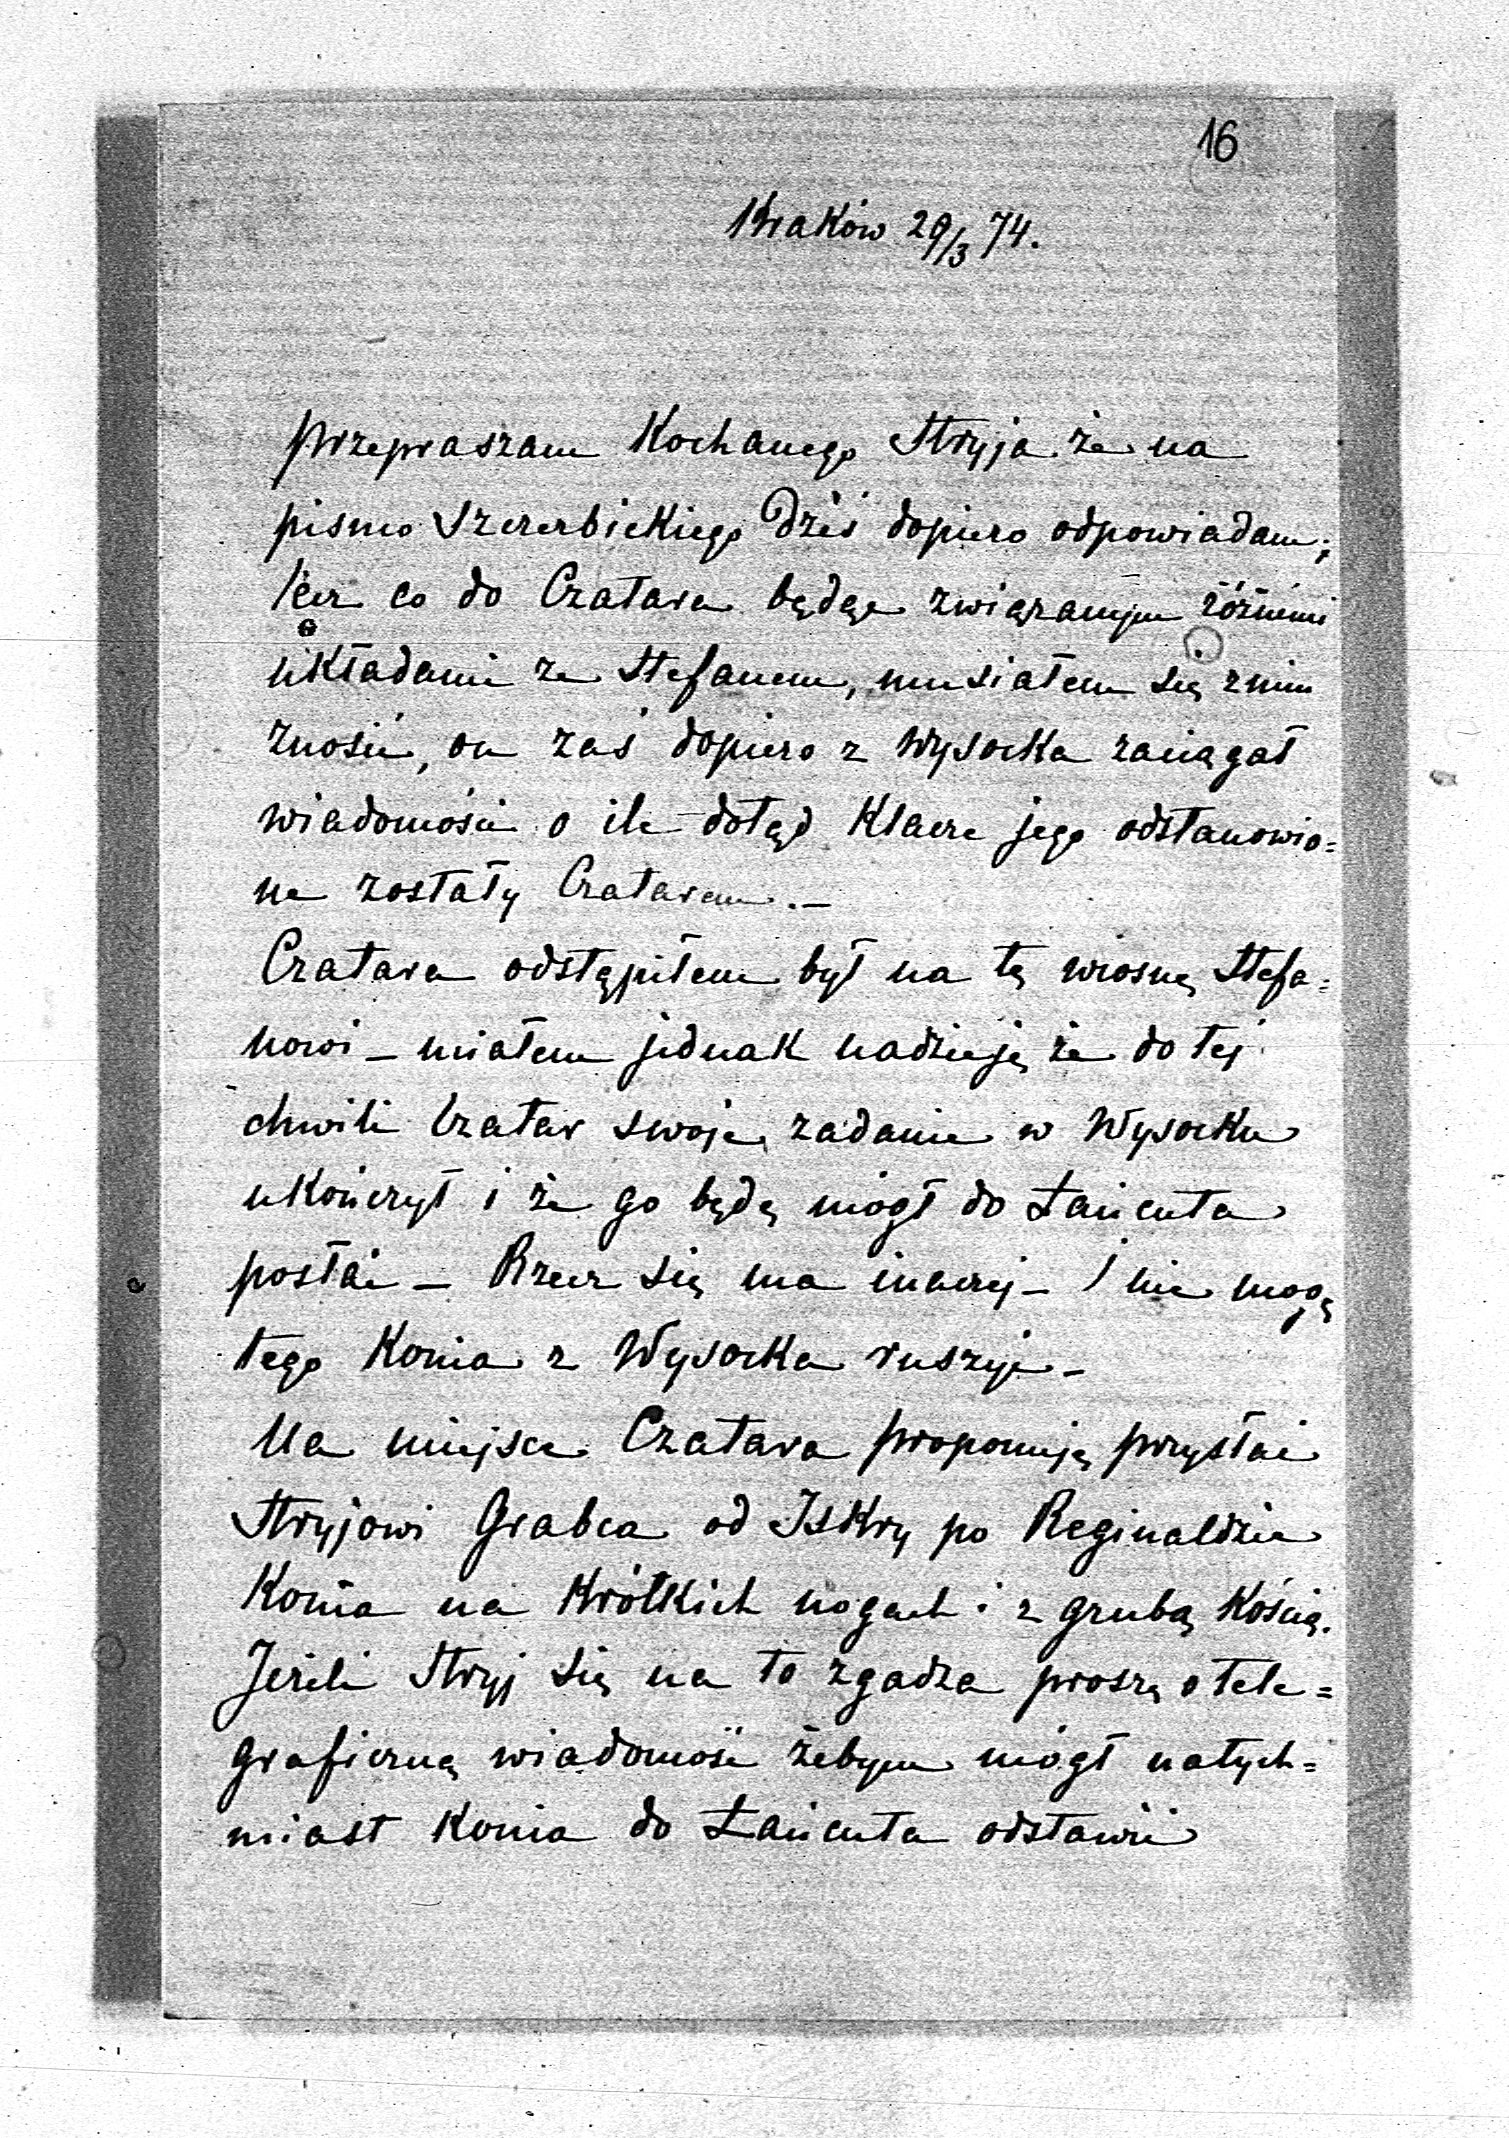 16
Kraków 29/3 74.
przepraszam Kochanego Stryja że na
pismo Szczerbickiego Dziś dopiero odpowiadam;
lecz co do Czatara będąc związanym różnemi
układami ze Stefanem, musiałem się z nim
znosić, on zaś dopiero z Wysocka zaciągał
wiadomości o ile dotąd Klacze jego odstanowio=
ne zostały Czatarem. –
Czatara odstąpiłem był na tę wiosnę Stefa=
nowi – miałem jednak nadzieję że do tej
chwili Czatar swoje zadanie w Wysocku
ukończył i że go będę mógł do Łańcuta
posłać – Rzecz się ma inaczej – I nie mogę
tego Konia z Wysocka ruszyć –
Na miejsce Czatara proponuję przysłać
Stryjowi Grabca od Iskry po Reginaldzie
Konia na Krótkich nogach i z grubą Kością.
Jeżeli Stryj się na to zgadza proszę o tele=
graficzną wiadomość żebym mógł natych=
miast Konia do Łańcuta odstawić